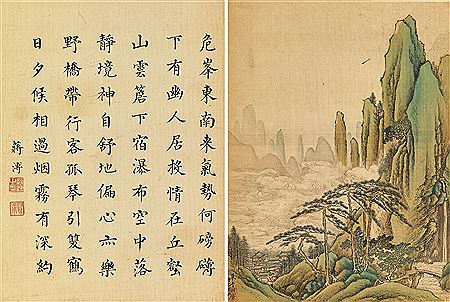 危峯東南來氣勢何磅礴
下有幽人居情在丘壑
山雲簷下宿瀑布空中落
靜境神自舒地偏心亦樂
野橋帶行客孤琴引雙鶴
日夕候相過烟霧有深約
蔣溥